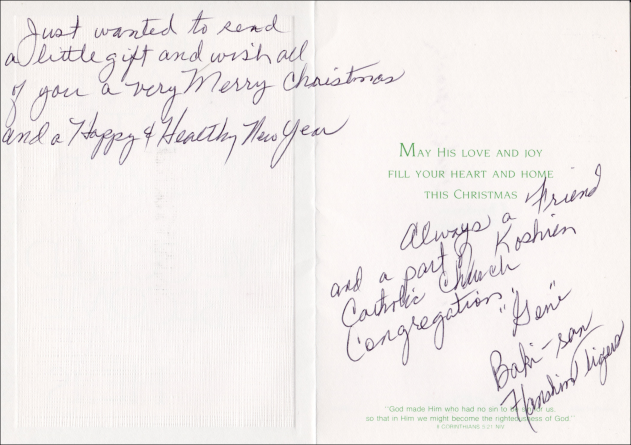 Just wanted to send
a little gift and wish all
of you a very Merry Christmas
and a Happy & Healthy New Year
MAY HIS LOVE AND JOY
FILL YOUR HEART AND HOME
THIS CHRISTMAS
Always a Friend
and a part of Koshien
Catholic Church
Congregation,
"Gene"
Baki-san
Hanshin Tigers
"God made Him who had no sin to be sin for us,
so that in Him we might become the righteousness of God."
II CORINTHIANS 5:21 NIV